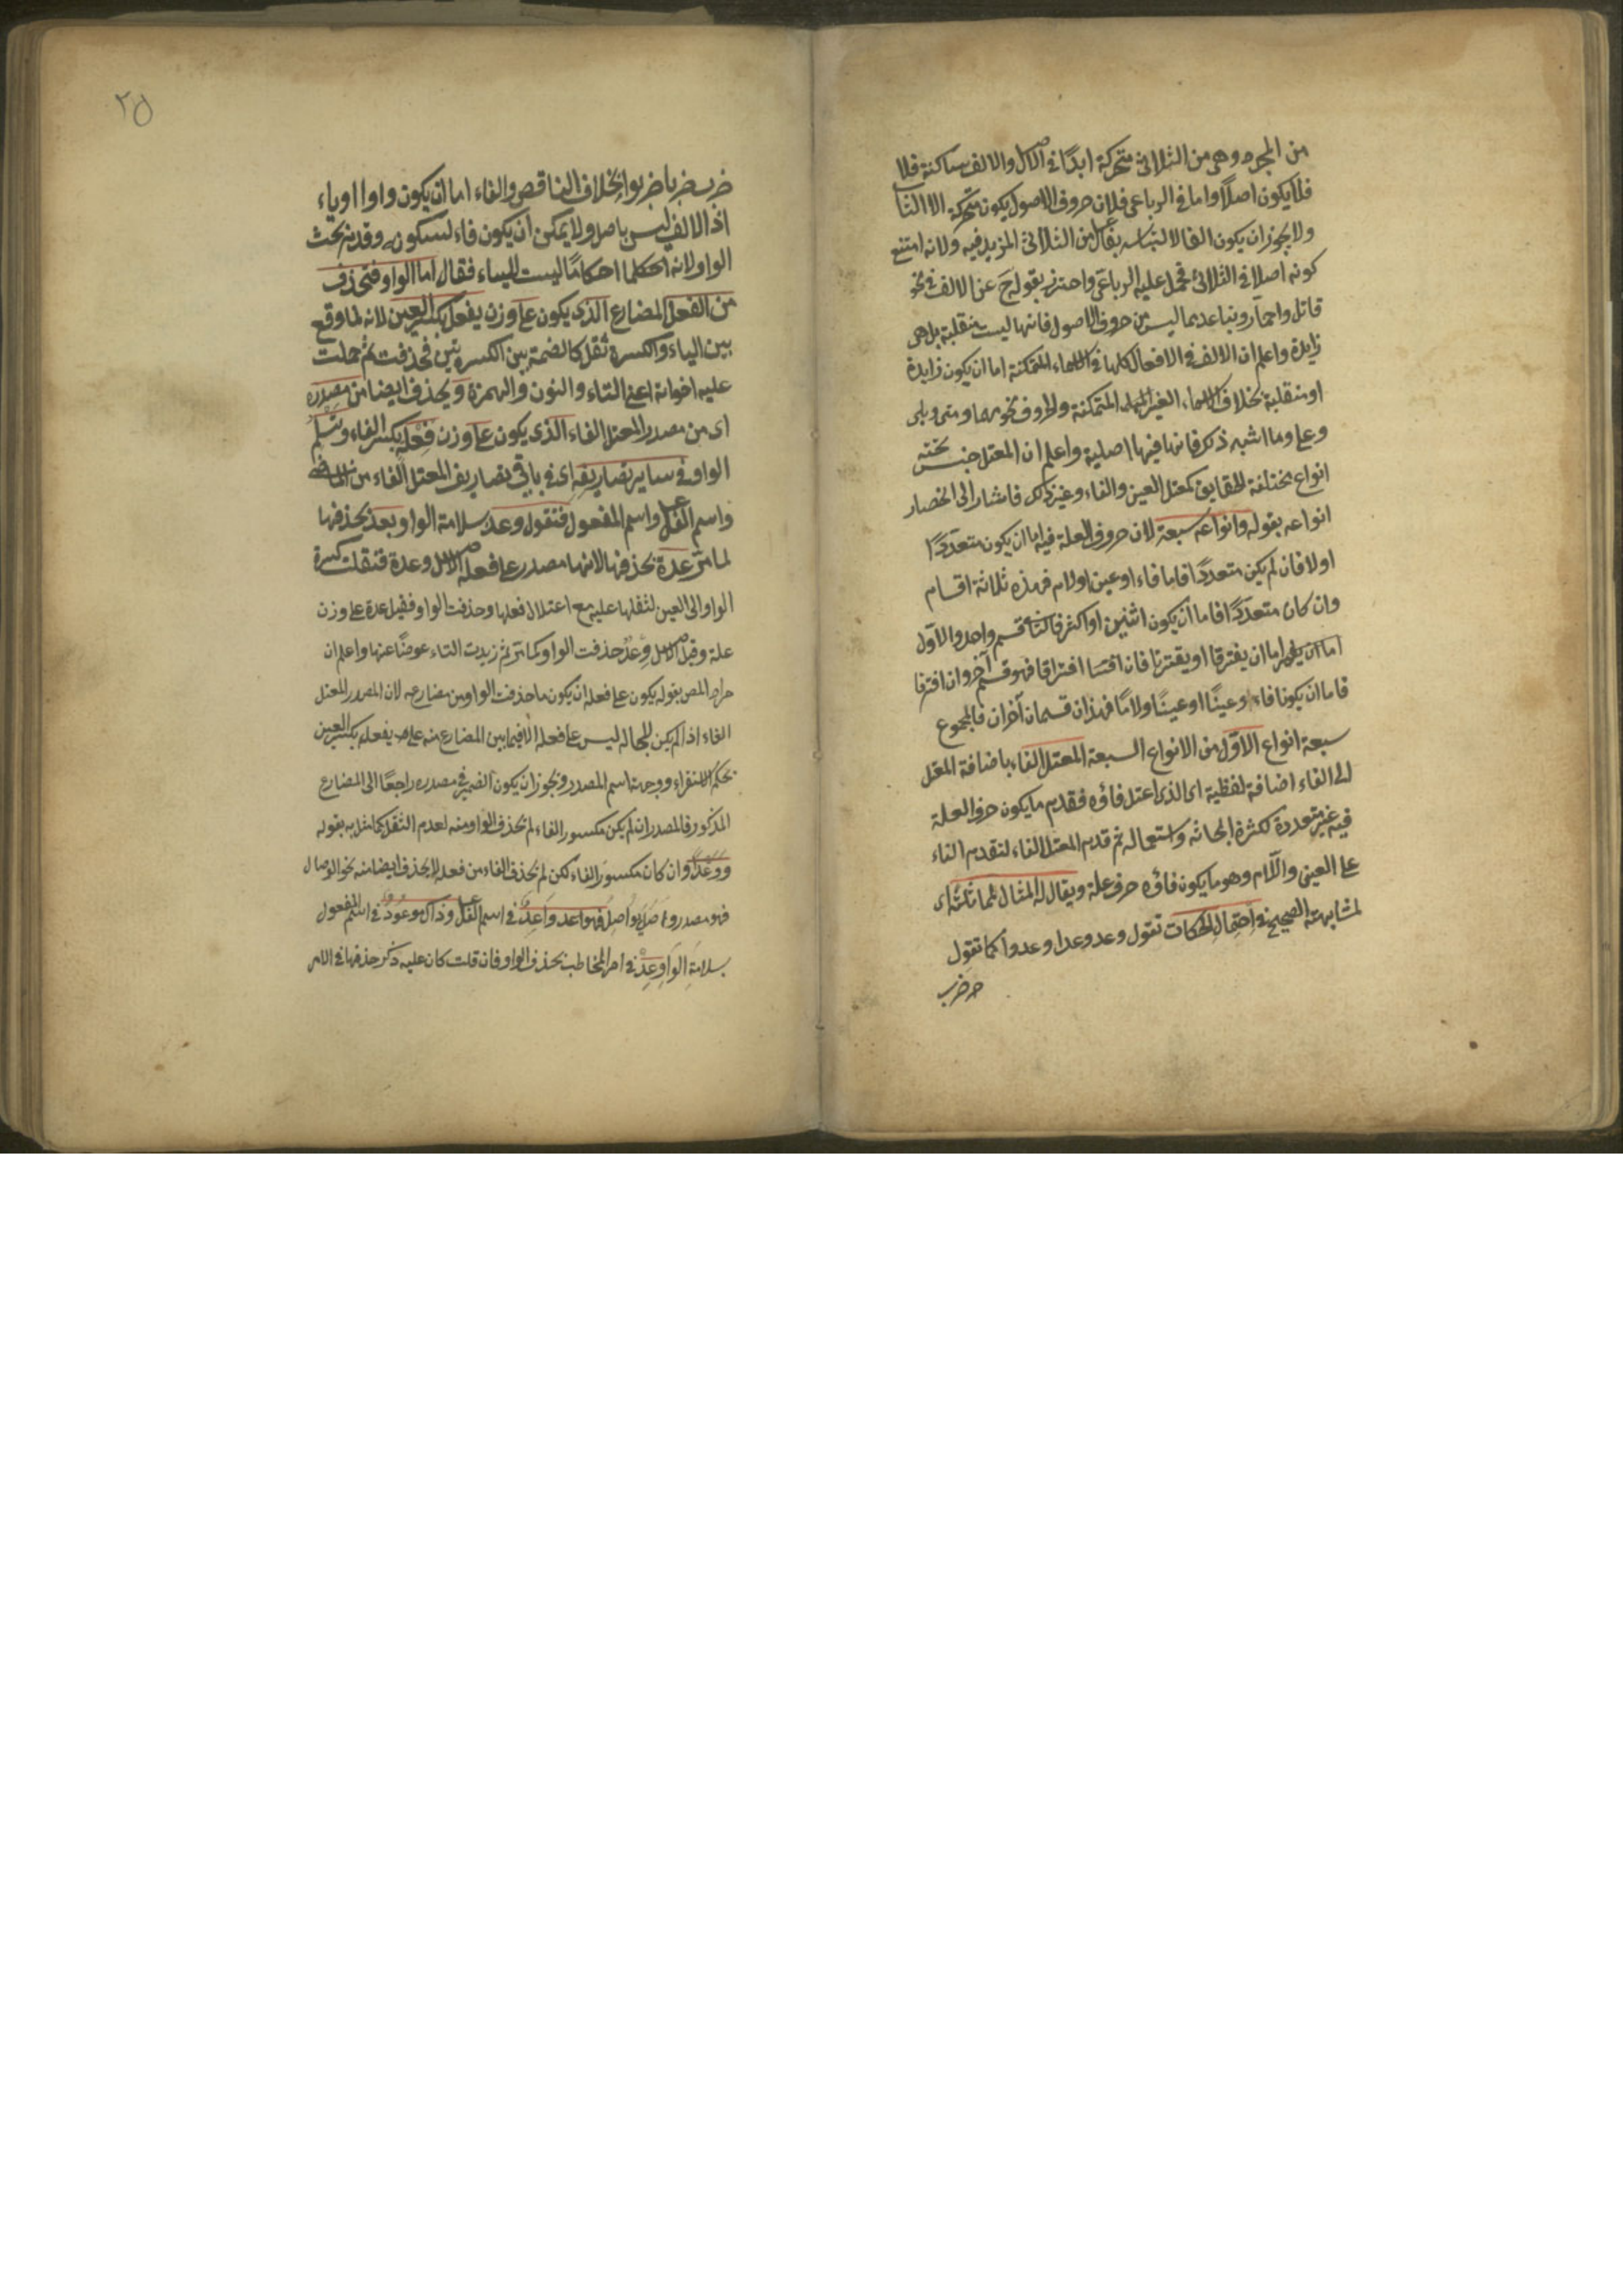 من المجرد وهى من الثلاثى متحركة ابدًا فى الاصل والالف ساكنة فلا
فلا يكون اصلا واما فى الرباعى فلان حروف الاصول يكون متحركة الا الثانى
ولا يجوز ان يكون الفا لالتباسه بفاعل من الثلاثى المزيد فيه ولانه امتنع
كونه اصلا فى الثلاثى فحمل عليه الرباعى واحترز بقوله ح عن الالف فى نحو
قاتل واحمارّ وتباعد مما ليس من حروف الاصول فانها ليست منقلبة بل هى
زايدة واعلم ان الالف فى الافعال كلها وفى الاسماء المتمكنة اما ان يكون زايدة
او منقلبة بخلاف الاسماء الغير المتمكنة والحروف نحو مهما ومتى وبلى
وعلى وما اشبه ذلك فانها فيها اصلية واعلم ان المعتل جنس تحته
انواع مختلفة الحقايق كمعتل العين والفاء وغير ذلك فاشار الى انحصار
انواعه بقوله وانواعه سبعة لان حروف العلة فيه اما ان يكون متعددًا
اولا فان لم يكن متعددًا فاما فاء او عين او لام فهذه ثلاثة اقسام
وان كان متعددًا فاما ان يكون اثنين او اكثر فالثانى قسم واحد والاول
اما ان يفترقا او يقترنا فان افترقا فهو قسم آخر وان اقترنا
فاما ان يكونا فاء وعينًا او عينًا ولامًا فهذان قسمان آخران فالمجموع
سبعة انواع الاوّل من الانواع السبعة المعتل الفاء باضافة المعتل
الى الفاء اضافة لفظية اى الذى اعتل فاؤه فقدم ما يكون حرف العلة
فيه غير متعددة لكثرة ابحاثه واستعماله ثم قدم المعتل الفاء لتقدم الفاء
على العين واللام وهو ما يكون فاؤه حرف علة ويقال له المثال لمماثلته اى
لمشابهته الصحيح فى احتمال الحركات تقول وعد وعدا وعدوا كما تقول
ضرب
٢٥
ضرب ضربا ضربوا بخلاف الناقص والفاء اما ان يكون واوا او ياء
اذ الالف ليس باصل ولا يمكن ان يكون فاء لسكونه وقدم بحث
الواو لان له احكاما ليست للياء فقال اما الواو فتحذف
من الفعل المضارع الذى يكون على وزن يفعل بكسر العين لانه لما وقع
بين الياء والكسرة ثقل كالضمة بين الكسرتين فحذفت ثم حملت
عليه اخواته اعنى التاء والنون والهمزة ويحذف ايضا من مصدره
اى من مصدر المعتل الفاء الذى يكون على وزن فِعْلة بكسر الفاء وتسلم
الواو فى ساير تصاريفه اى فى باقى تصاريف المعتل الفاء من الماضى
واسم الفاعل واسم المفعول فتقول وعد بسلامة الواو يعد بحذفها
لما مرّ عدة بحذفها لانها مصدر على فعلة الاصل وعدة فنقلت كسرة
الواو الى العين لثقلها عليه مع اعتلال فعلها وحذفت الواو فقيل عدة على وزن
علة وقيل الاصل وِعْدٌ حذفت الواو كما مرّ ثم زيدت التاء عوضًا عنها واعلم ان
مراد المص بقوله يكون على فعلة ان يكون مما حذفت الواو من مضارعه لان المصدر المعتل
الفاء اذا لم يكن للحالة ليس على فعلة الا فيما بين المضارع منه على يفعل بكسر العين
بحكم الاستقراء ووجهة اسم المصدر ويجوز ان يكون الضمير فى مصدره راجعًا الى المضارع
المذكور فالمصدر ان لم يكن مكسور الفاء لم تحذف الواو منه لعدم الثقل كما مثل به بقوله
ووعدًا وان كان مكسور الفاء لكن لم تحذف الفاء من فعله لا يحذف ايضا منه نحو الوصال
فهو مصدر واصل يواصل فهو واعد فى اسم الفاعل وذاك موعود فى اسم المفعول
بسلامة الواو عِدْ فى امر المخاطب بحذف الواو فان قلت كان عليه ذكر حذفها فى الامر